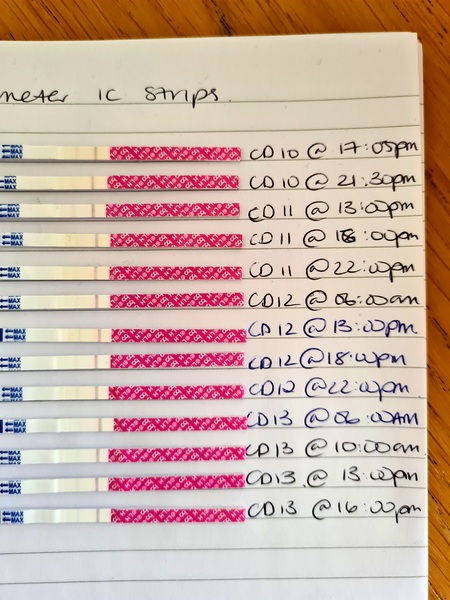 meter IC Strips.
MAX CD 10 @ 17:05pm
MAX CD 10 @ 21:30pm
MAX CD 11 @ 13:00pm
MAX CD 11 @ 18:00pm
MAX CD 11 @ 22:00pm
MAX CD12 @ 06:00am
MAX CD 12 @ 13:00pm
MAX CD12 @ 18:00pm
MAX CD12 @ 22:00pm
MAX CD 13 @ 06:00AM
MAX CD 13 @ 10:00am
MAX CD13 @ 13:00pm
MAX CD 13 @ 16:00pm